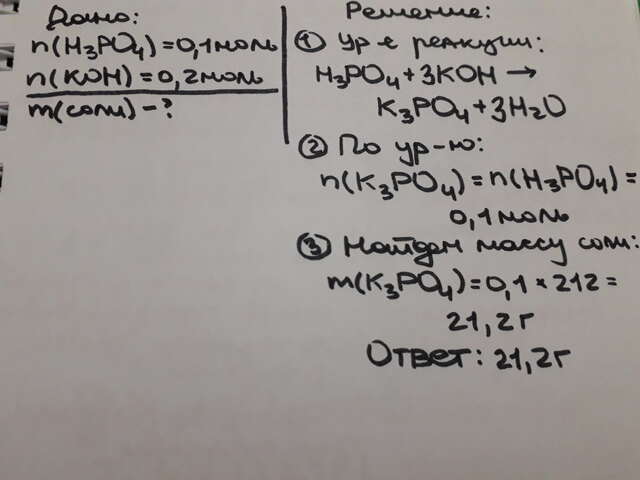 Дано:
n(H₃PO₄)=0,1моль
n(KOH)=0,2моль
m(соли)-?
Решение:
① Ур-е реакции:
H₃PO₄+3KOH→
K₃PO₄+3H₂O
② По ур-ю:
n(K₃PO₄)=n(H₃PO₄)=
0,1моль
③ Найдем массу соли:
m(K₃PO₄)=0,1*212=
21,2г
Ответ: 21,2г